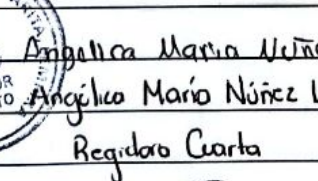 Angelica Maria Nuñ
Angélica María Núñez L
Regidora Cuarta